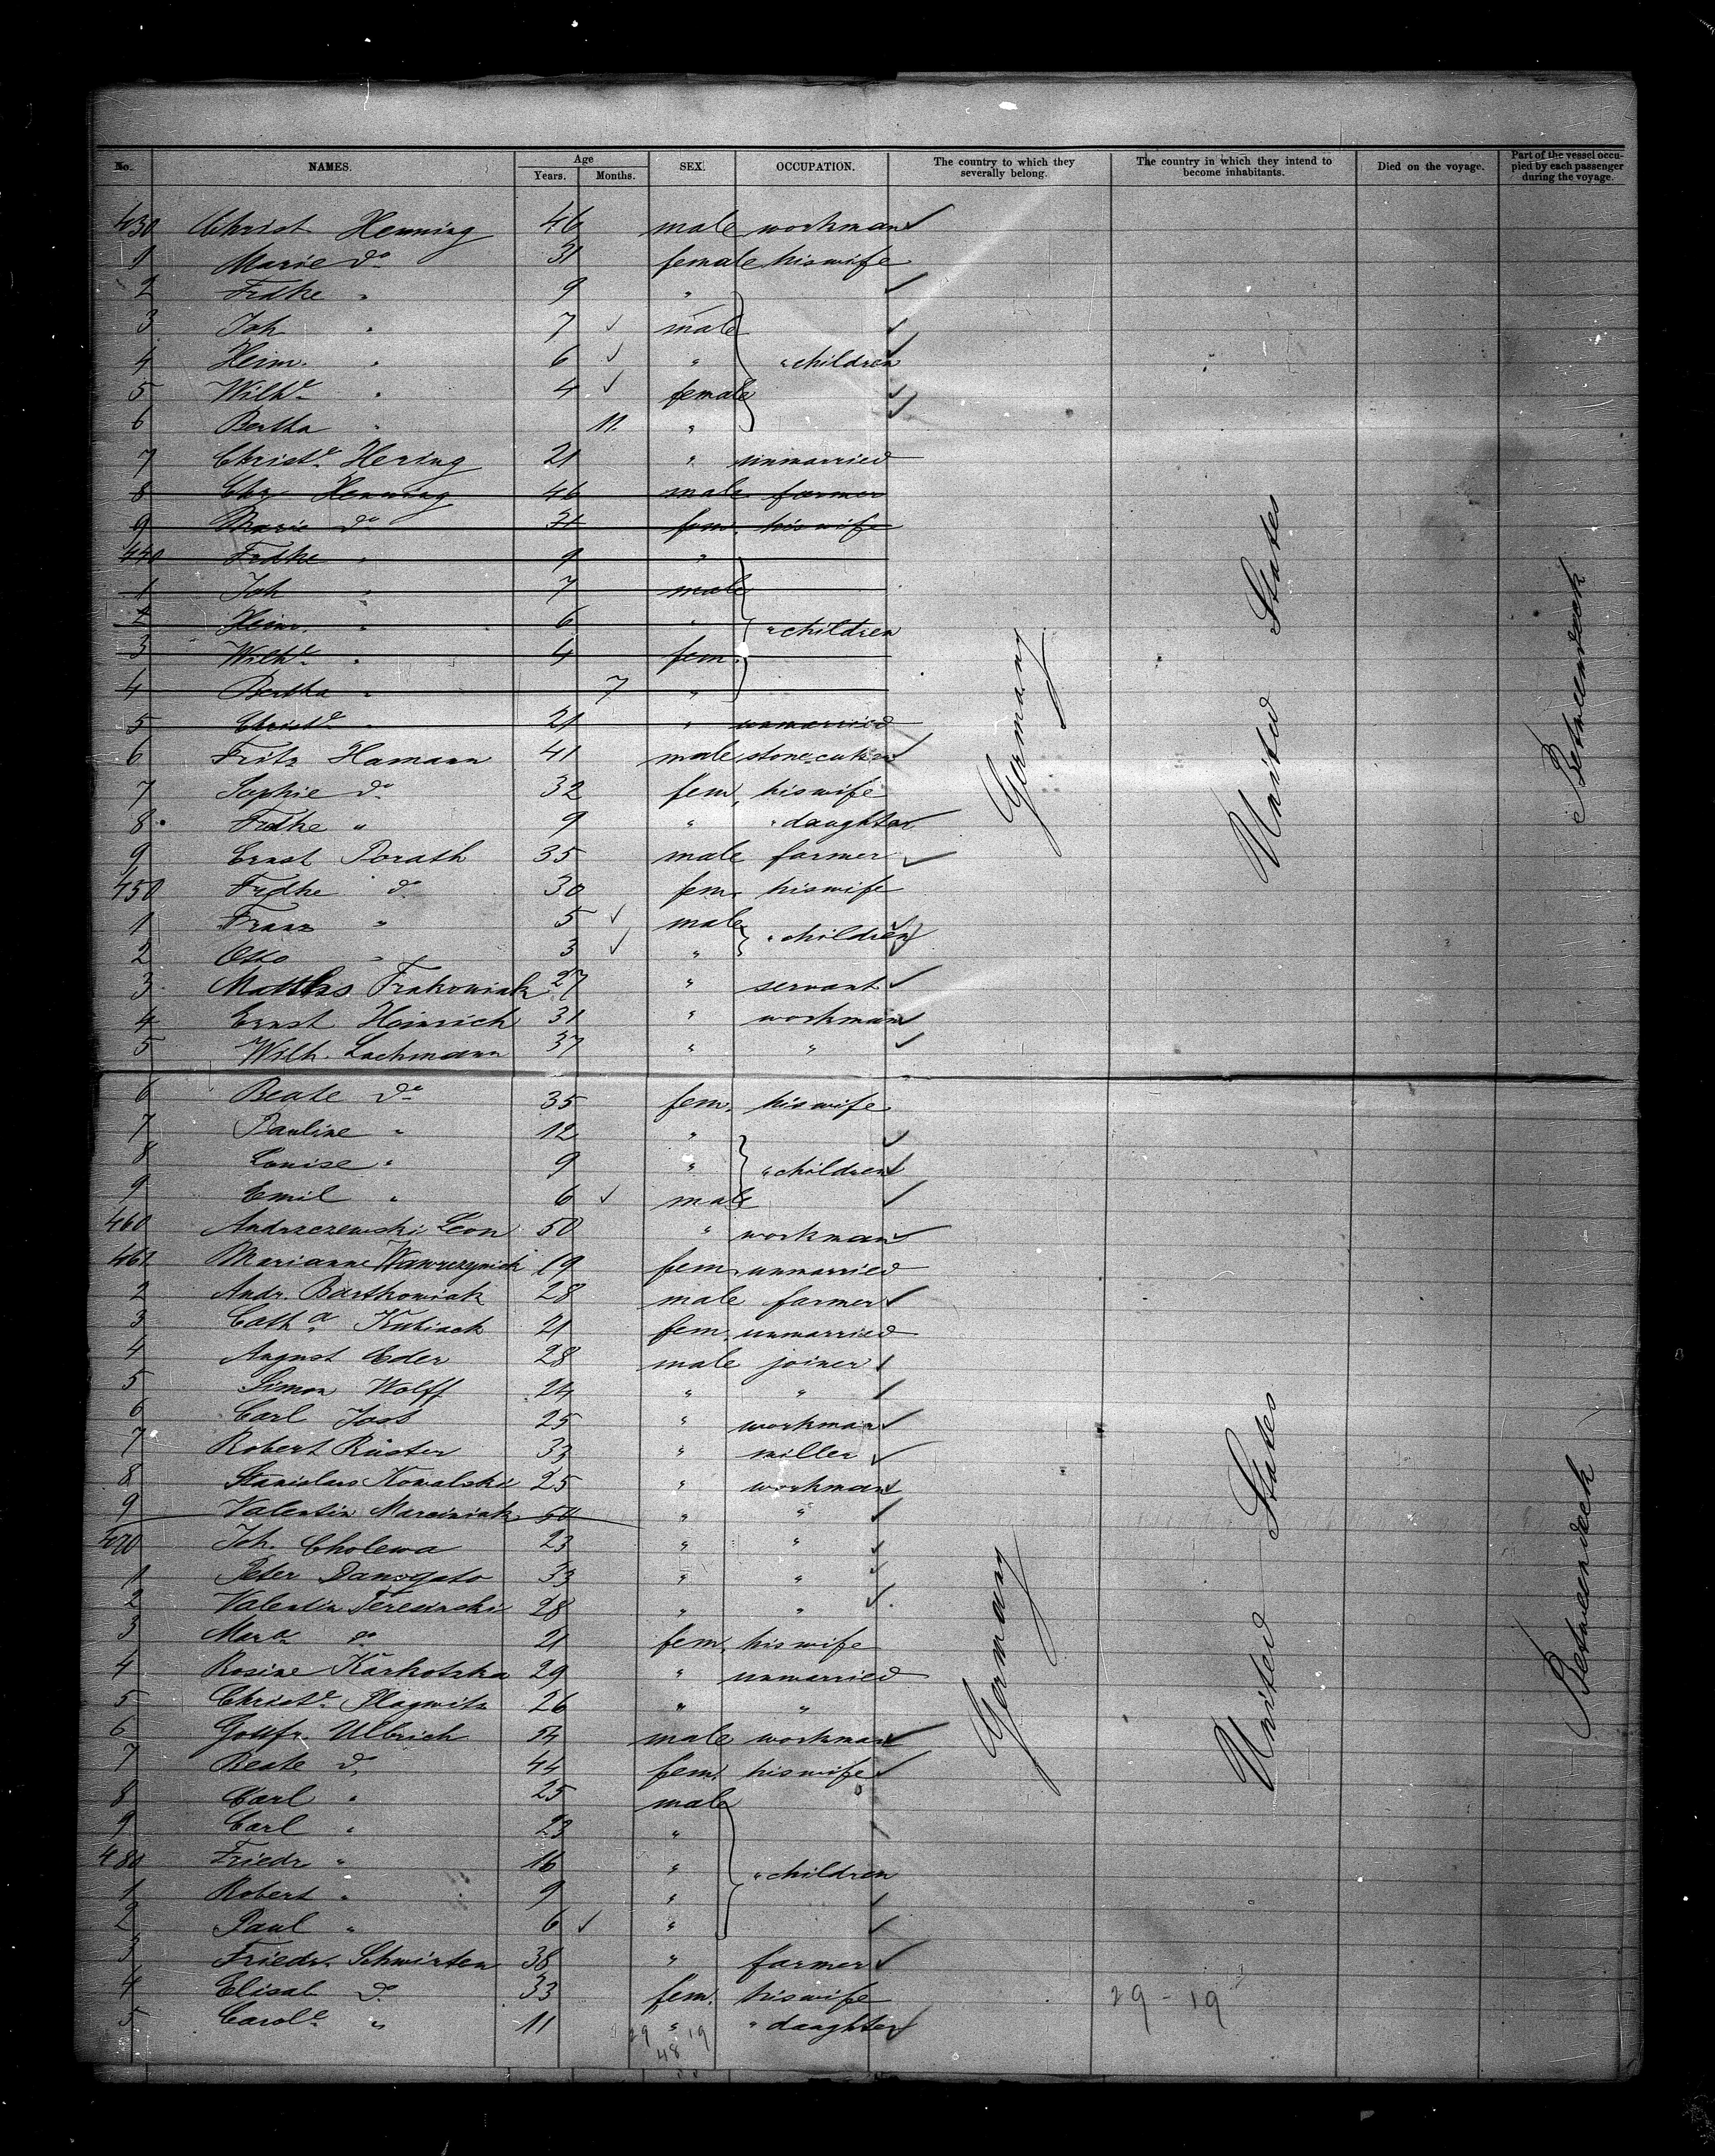 No. NAMES. Age Years. Months. SEX. OCCUPATION. The country to which they severally belong. The country in which they intend to become inhabitants. Died on the voyage. Part of the vessel occupied by each passenger during the voyage.
430 Christ Henning 46 male workman
1 Marie do 31 female his wife
2 Fridke " 9 "
3 Joh " 7 male
4 Heinr. " 6 " " children
5 Wilhe " 4 female
6 Bertha " 11. "
7 Christe Hering 21 " unmarried
8 Chr. Henning 46 male farmer
9 Marie do 31 fem. his wife
440 Fridke " 9 "
1 Joh " 7 male
2 Heinr. " 6 " " children
3 Wilhe " 4 fem.
4 Bertha " 7 "
5 Christe " 21 " unmarried
6 Fritz Hamann 41 male stonecutter
7 Sophie do 32 fem. his wife
8 Fridke " 9 " " daughter
9 Ernst Porath 35 male farmer
450 Fridke do 30 fem. his wife
1 Franz " 5 male
2 Otto " 3 " " children
3 Frakowiak 27 " servant
4 Ernst Heinrich 31 " workman
5 Wilh. Lachmann 37 " "
6 Beate do 35 fem. his wife
7 Pauline " 12 "
8 Louise " 9 " " children
9 Emil " 6 male
460 Andrzezewski Leon 50 " workman
461 Marianne Wawrzyniak 19 fem. unmarried
2 Andr. Bartkowiak 28 male farmer
3 Catha Kubiack 21 fem. unmarried
4 August Eder 28 male joiner
5 Simon Wolff 24 " "
6 Carl Jost 25 " workman
7 Robert Rüster 33 " miller
8 Stanislaus Kowalski 25 " workman
9 Valentin Marciniak " "
470 Joh. Cholewa 23 " "
1 Peter 33 " "
2 Valentin Teresinski 28 " "
3 Mara do 21 fem. his wife
4 Rosine Karkotzka 29 " unmarried
5 Christe Plagwitz 26 " "
6 Gottfr. Ullrich 54 male workman
7 Beate do 44 fem. his wife
8 Carl " 25 male
9 Carl " 23 "
480 Friedr. " 16 " " children
1 Robert " 9 "
2 Paul " 6 "
3 Friedr. Schwirten 38 " farmer
4 Elisab. do 33 fem. his wife
5 Carole " 11 " " daughter
Germany
United States
Betweendeck
Germany
United States
Betweendeck
29 - 19
29 19
48